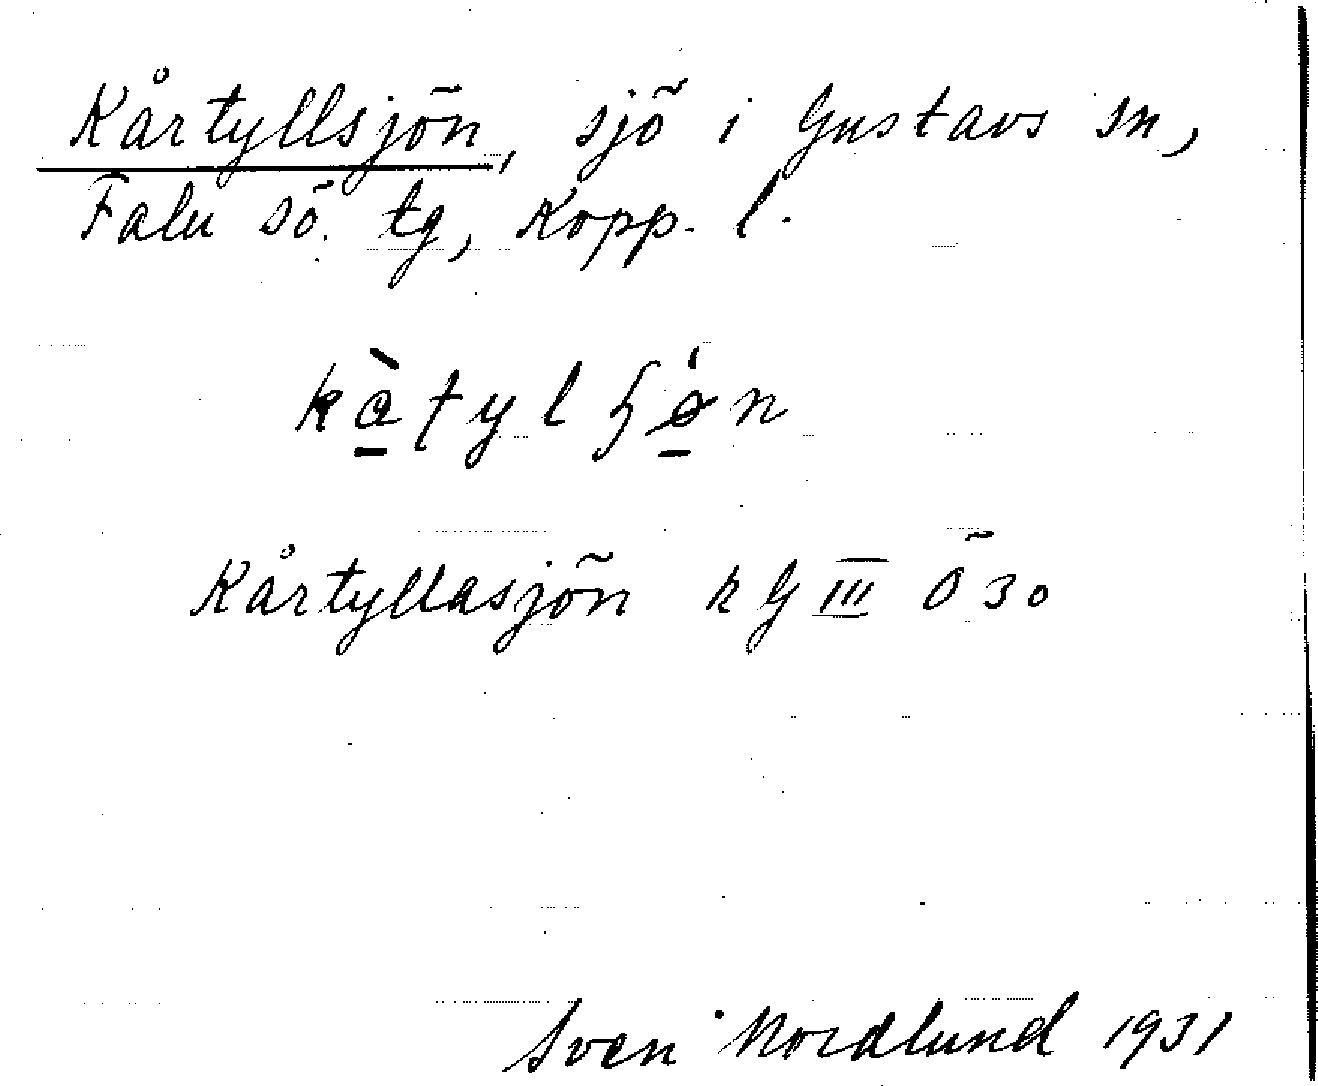 Kårtyllsjön, sjö i Gustavs sn,
Falu sö. tg, Kopp. l.
Kårtyllasjön k G III Ö 30
Sven Nordlund 1931